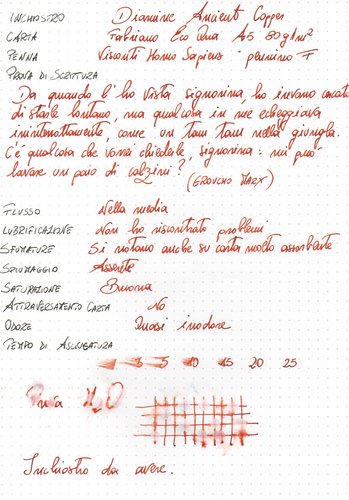 INCHIOSTRO Diamine Ancient Copper
CARTA Fabriano Eco Qua A5 80 g/m²
PENNA Visconti Homo Sapiens pennino F
PROVA DI SCRITTURA
Da quando l'ho vista signorina, ho invano cercato
di starle lontano, ma qualcosa in me echeggiava
ininterrottamente, come un tam tam nella giungla.
C'è qualcosa che vorrei chiederle, signorina: mi può
lavare un paio di calzini?
(GROUCHO MARX)
FLUSSO Nella media
LUBRIFICAZIONE Non ho riscontrato problemi
SFUMATURE Si notano anche su carta molto assorbente
SPIUMAGGIO Assente
SATURAZIONE Buona
ATTRAVERSAMENTO CARTA No
ODORE Quasi inodore
TEMPO DI ASCIUGATURA
5 10 15 20 25
H₂O
Inchiostro da avere.